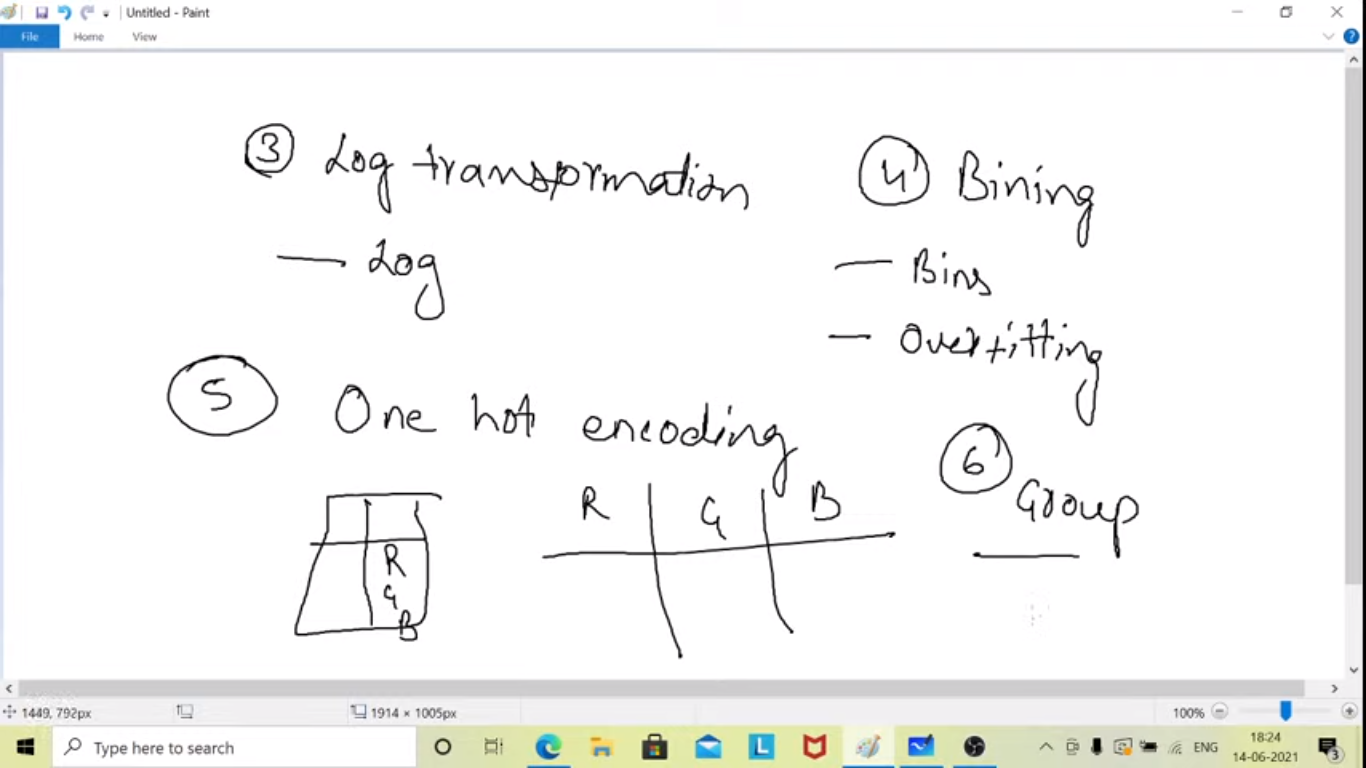 Untitled - Paint
File Home View
3 Log transformation
— Log
4 Bining
— Bins
— Overfitting
5 One hot encoding
R
G
B
R G B
6 Group
1449, 792px
1914 × 1005px
100%
Type here to search
ENG
18:24
14-06-2021
3